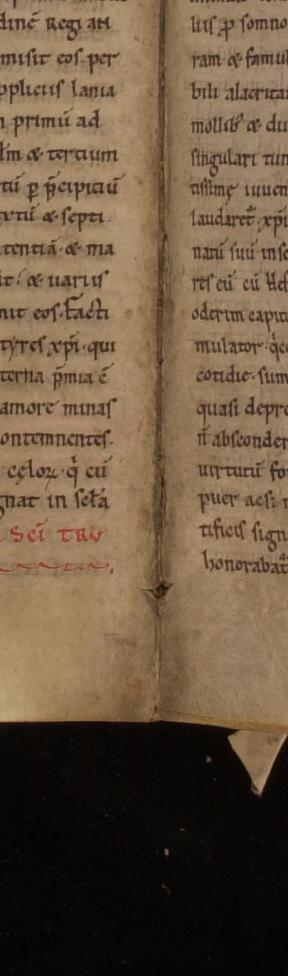 dinē Regi an
misit eos per
ppliciis lania
n primū ad
lm̄ & tertium
tū p̱ p̄cipiciū
xtū & septi
tentiā & ma
it; & uariis
nit eos. Facti
tyres xp̄i. qui
terna p̄mia ē
amore minas
ontemnentes.
cęloꝝ. q̇ cū
gnat in sc̄la
Sc̄i TRV
liis ꝓ somno
ram & famul
bili alacrita
mollib; & du
singulari tun
tissimę iuuen
laudaret̄. xp̄i
natū suū in sc
res eū cū
oderim caput
mulator. q̇
cotidie. sum
quasi depre
n̄ absconder
uirtutū fo
puer aesi
tificis sign
honorabat̄